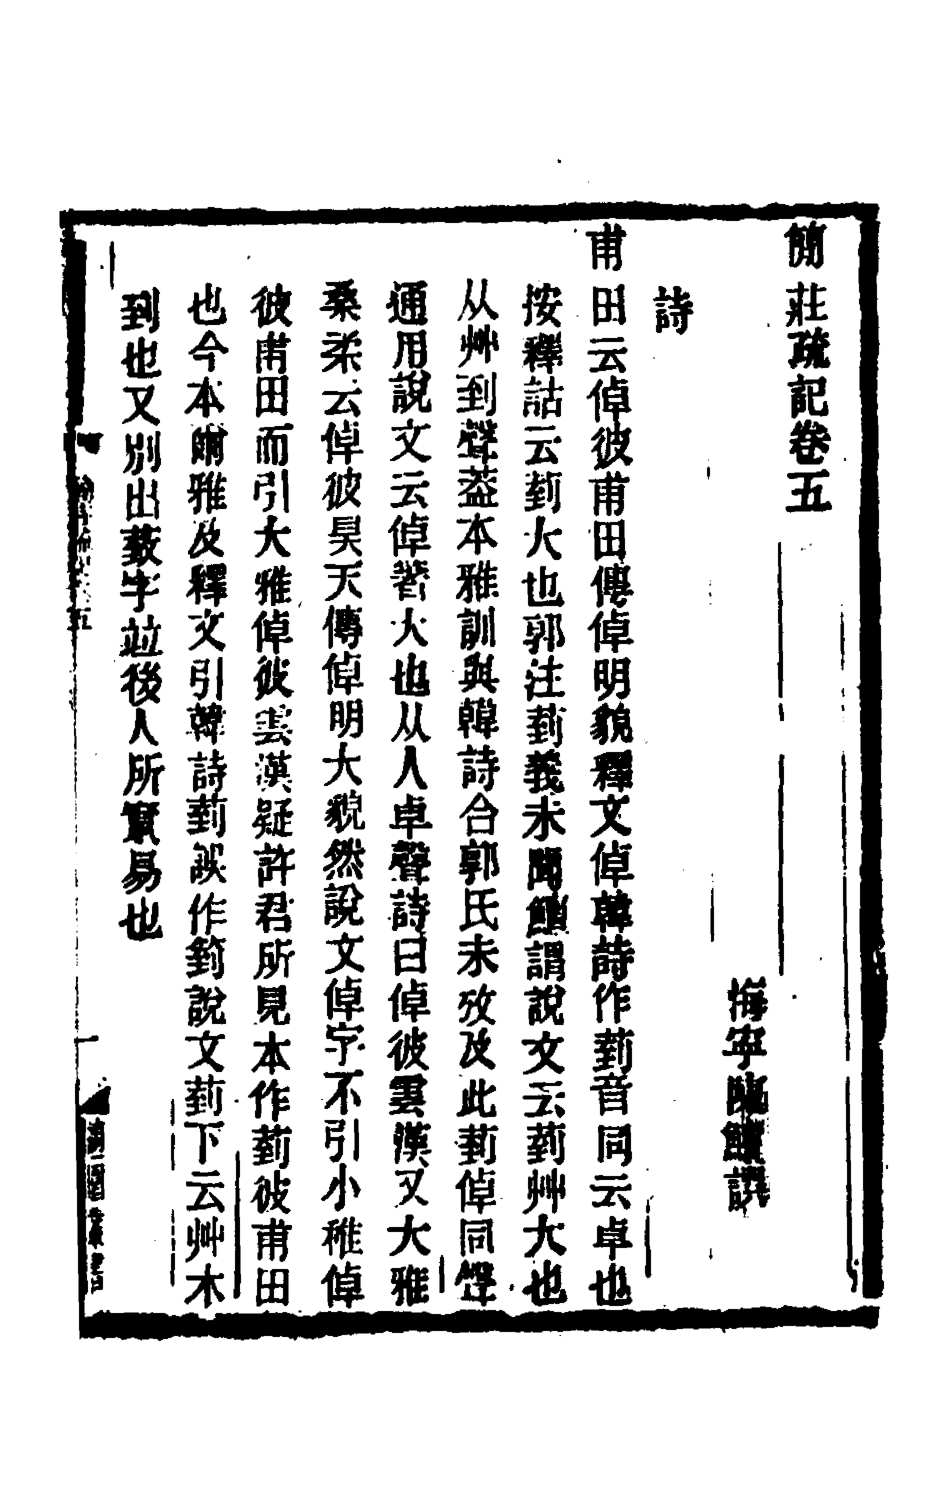 簡莊疏記卷五
海寧陳鱣譔
詩
甫田云倬彼甫田傳倬明貌釋文倬韓詩作菿音同云卓也
按釋詁云菿大也郭注菿義未聞鱣謂說文云菿艸大也
从艸到聲葢本雅訓與韓詩合郭氏未攷及此菿倬同聲
通用說文云倬箸大也从人卓聲詩曰倬彼雲漢又大雅
桑柔云倬彼昊天傳倬明大貌然說文倬字不引小稚倬
彼甫田而引大雅倬彼雲漢疑許君所見本作菿彼甫田
也今本爾雅及釋文引韓詩菿誤作箌說文菿下云艸木
到也又別出蔌字竝後人所竄易也
一